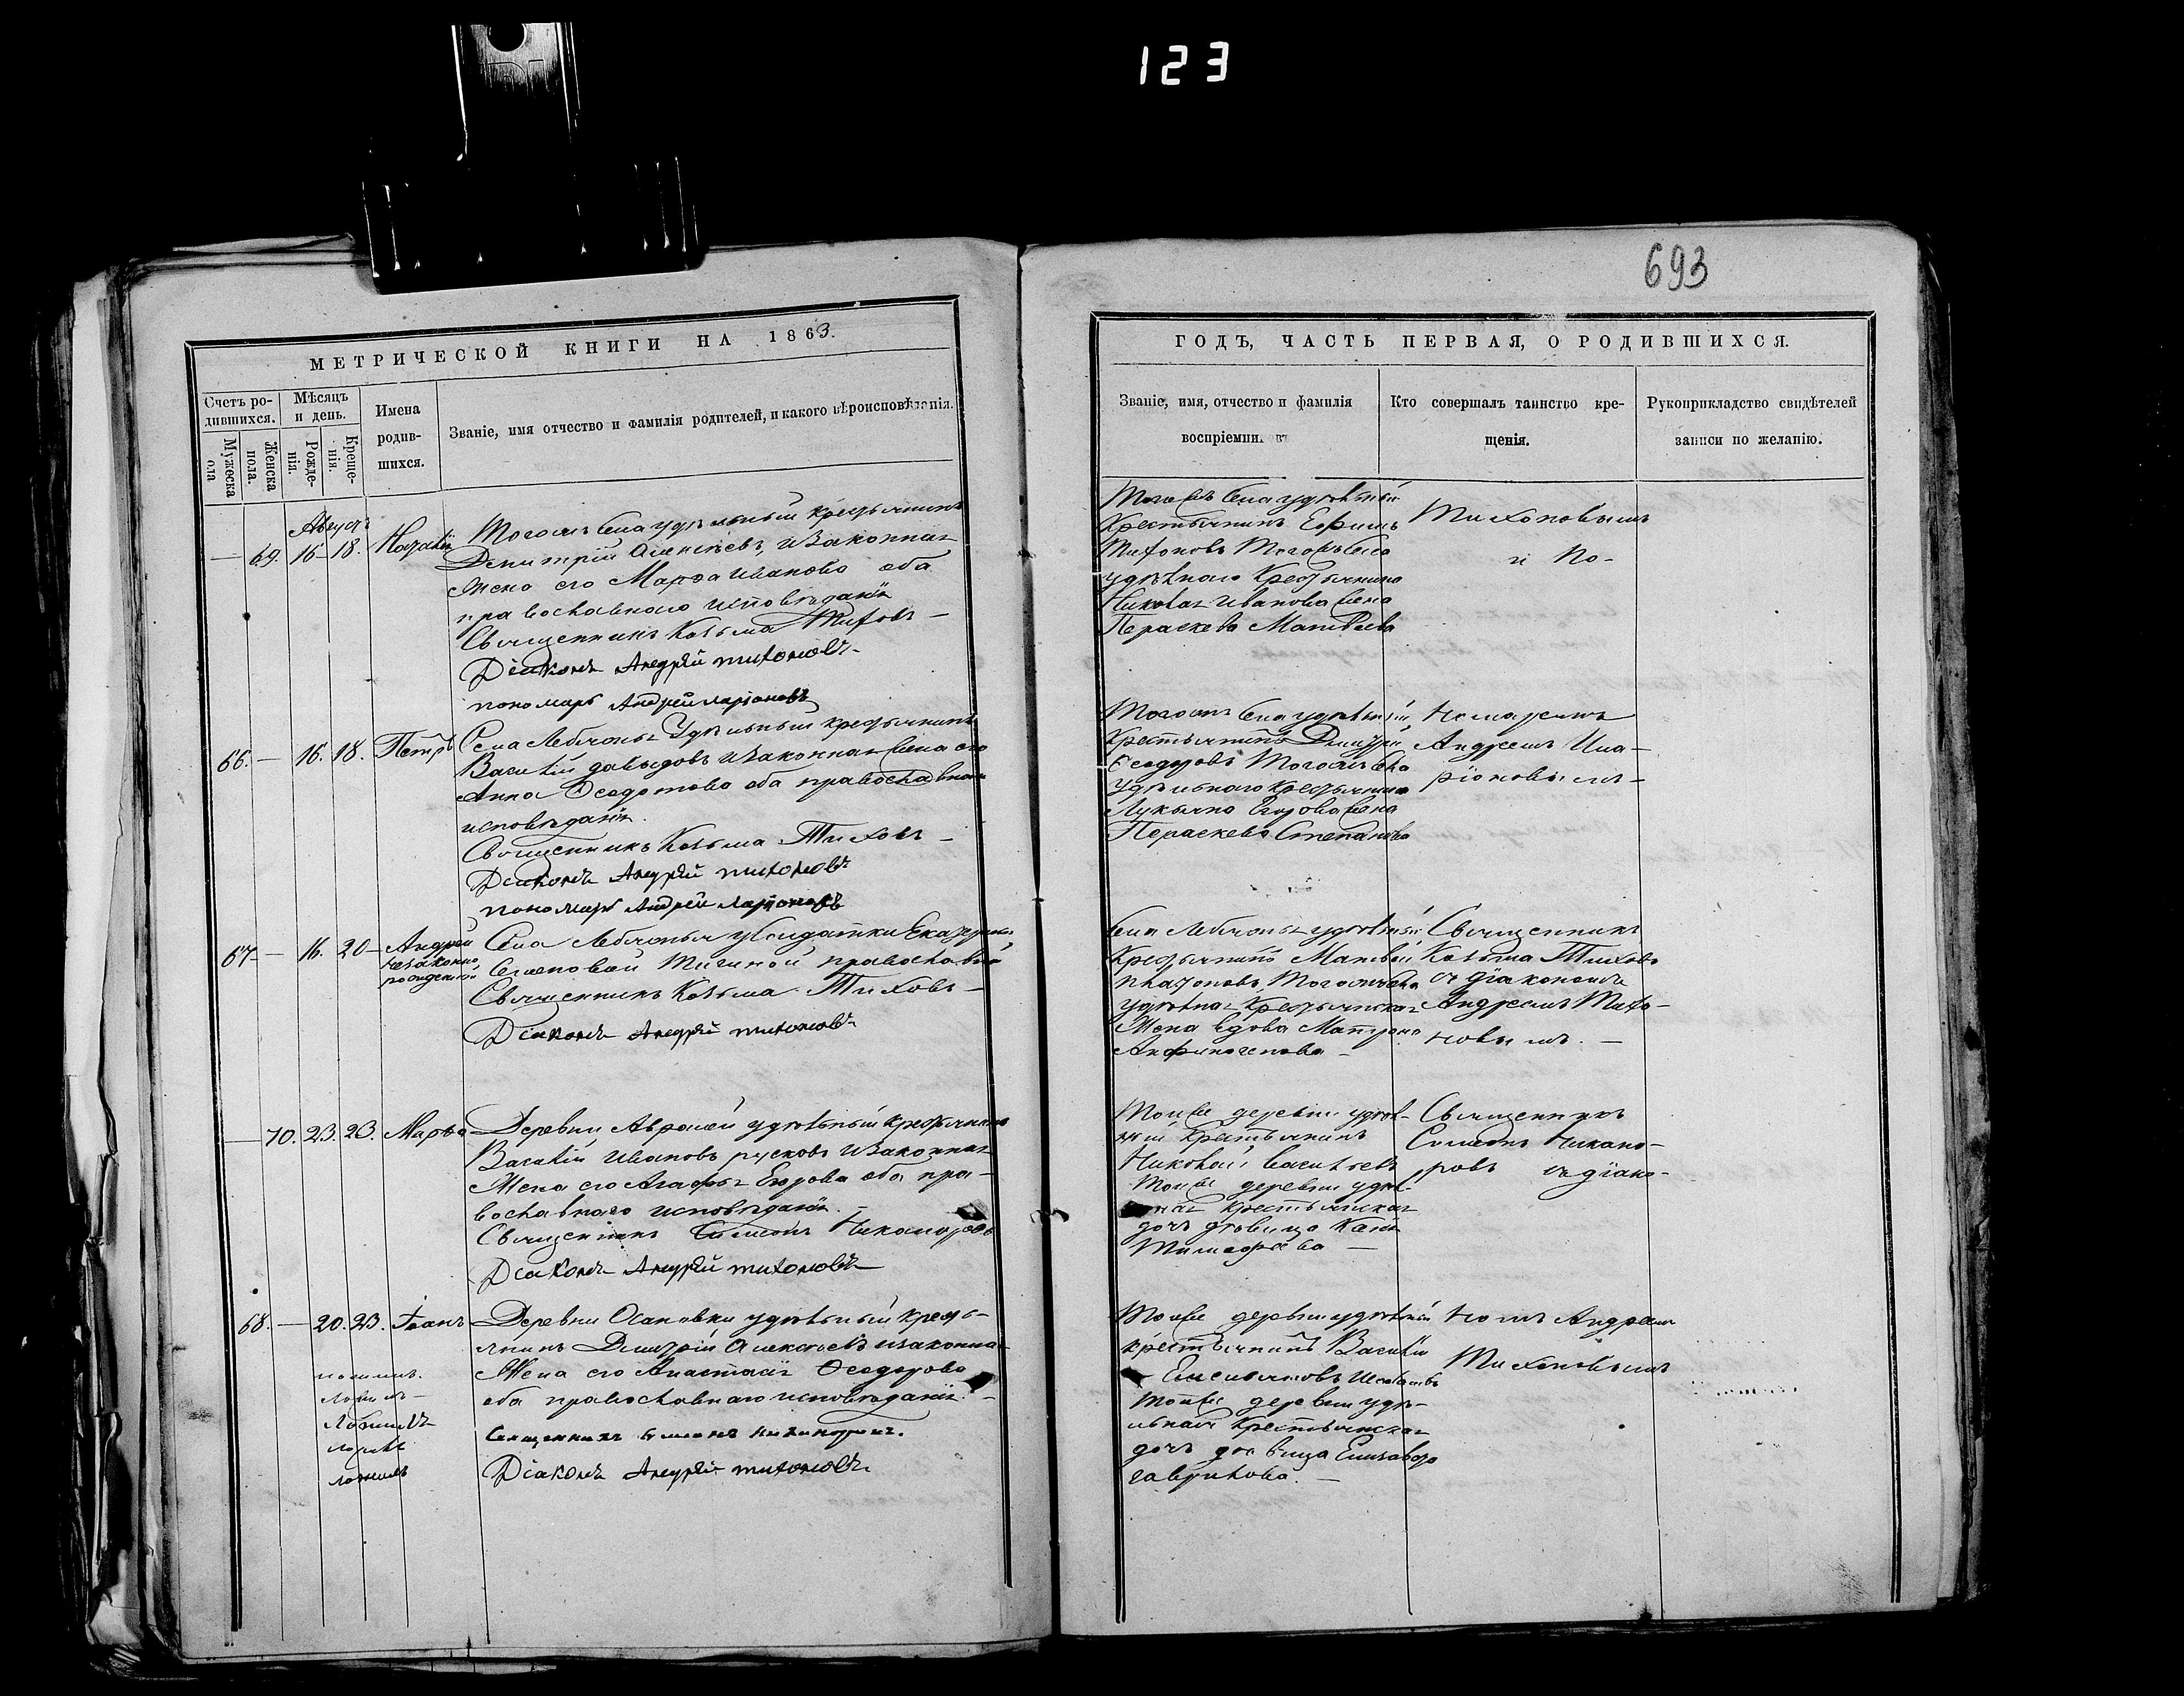 123
693
МЕТРИЧЕСКОЙ КНИГИ НА 1863.
Счетъ ро-
дившихся.
Мѣсяцъ
и день.
Имена
родив-
шихся.
Званіе, имя отчество и фамилія родителей, и какого вѣроисповѣданія.
Мужеска
пола
Женска
пола.
Рожде-
нія.
Креще-
нія.
Августъ
— 69. 16 18.
Тогожъ села удѣльный крестьянинъ
Димитрій Алексѣевъ, и законная
жена его Марѳа Иванова оба
православнаго исповѣданія
Священникъ Козьма Тиховъ —
Діаконъ Андрей Тихоновъ
пономарь Андрей Ларіоновъ
66. — 16. 18. Петръ
Села Удѣльный крестьянинъ
Василій Давыдовъ и законная жена его
Анна Ѳедотова оба православнаго
исповѣданія.
Священникъ Козьма Тиховъ —
Діаконъ Андрей Тихоновъ
пономарь Андрей Ларіоновъ
67 — 16. 20 — Андрей
незаконно
рожденный
Села у солдатки Екатерины
Семеновой православной
Священникъ Козьма Тиховъ —
Діаконъ Андрей Тихоновъ
— 70. 23. 23. Марѳа
Деревни удѣльный крестьянинъ
Василій Ивановъ и законная
жена его Агафья Егорова оба пра-
вославнаго исповѣданія. —
Священникъ Симеонъ Никаноровъ
Діаконъ Андрей Тихоновъ
68. — 20. 23. Іоанъ
Деревни Осиновки удѣльный кресть-
янинъ Димитрій Алексѣевъ и законная
жена его Анастасія Ѳеодорова
оба православнаго исповѣданія. —
Священникъ Симеонъ Никаноровъ.
Діаконъ Андрей Тихоновъ
ГОДЪ, ЧАСТЬ ПЕРВАЯ, О РОДИВШИХСЯ.
Званіе, имя, отчество и фамилія
воспріемниковъ
Кто совершалъ таинство кре-
щенія.
Рукоприкладство свидѣтелей
записи по желанію.
Тогожъ села удѣльный
Крестьянинъ Ефимъ
Тихоновъ Тогожъ села
удѣльнаго Крестьянина
Николая Иванова жена
Пераскева Матвѣева
Тихоновымъ
и По-
Тогожъ села удѣльный
Крестьянинъ Димитрій
Ѳеодоровъ Тогожъ села
Удѣльнаго Крестьянина
Лукьяна Егорова жена
Пераскева Степанова
номаремъ
Андреемъ Ила-
ріоновымъ —
Села удѣльный
Крестьянинъ Матвѣй
Платоновъ, Тогожъ села
удѣльная Крестьянская
Жена вдова Матрона
Анфиногенова —
Священникъ
Козьма Тиховъ
съ діакономъ
Андреемъ Тихо-
новымъ. —
Тойже деревни удѣль-
ный Крестьянинъ
Николай Васильевъ
Тойже деревни удѣль-
ная Крестьянская
дочь дѣвица
Тимоѳеева —
Священникъ
Симеонъ Никано-
ровъ съ діако-
Тойже деревни удѣльный
крестьянинъ Василій
Тойже деревни удѣ-
льная Крестьянская
дочь дѣвица Елизавета
Гаврилова. —
номъ Андреемъ
Тихоновымъ